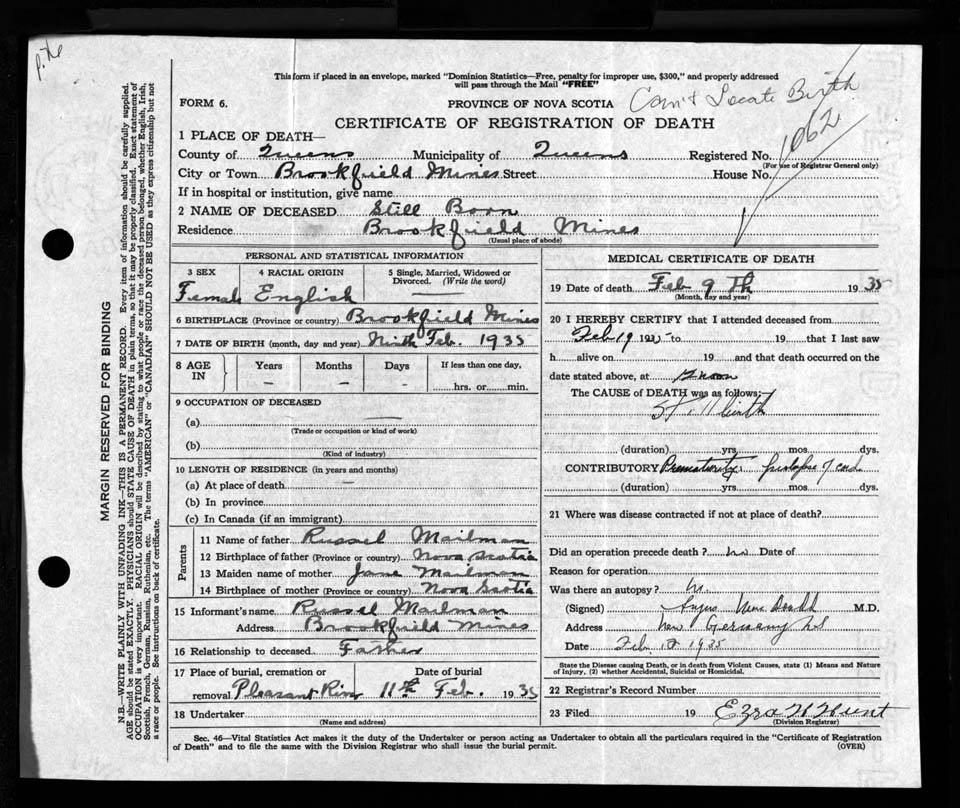 This form if placed in an envelope, marked "Dominion Statistics—Free, penalty for improper use, $300," and properly addressed
will pass through the Mail "FREE"
FORM 6.
PROVINCE OF NOVA SCOTIA
Can't Locate Birth
CERTIFICATE OF REGISTRATION OF DEATH
1062
1 PLACE OF DEATH—
County of Queens Municipality of Queens Registered No.
(For use of Registrar General only)
City or Town Brookfield Mines Street House No.
If in hospital or institution, give name
2 NAME OF DECEASED Still Born
Residence Brookfield Mines
(Usual place of abode)
MARGIN RESERVED FOR BINDING
N.B.—WRITE PLAINLY WITH UNFADING INK—THIS IS A PERMANENT RECORD. Every item of information should be carefully supplied.
AGE should be stated EXACTLY. PHYSICIANS should STATE CAUSE OF DEATH in plain terms, so that it may be properly classified. Exact statement of
OCCUPATION is very important. RACIAL ORIGIN will be described by stating to what people or race the deceased person belonged, whether English, Irish,
Scottish, French, German, Russian, Ruthenian, etc. The terms "AMERICAN" or "CANADIAN" SHOULD NOT BE USED as they express citizenship but not
a race or people. See instructions on back of certificate.
PERSONAL AND STATISTICAL INFORMATION
3 SEX 4 RACIAL ORIGIN 5 Single, Married, Widowed or
Divorced. (Write the word)
Female English
6 BIRTHPLACE (Province or country) Brookfield Mines
7 DATE OF BIRTH (month, day and year) Ninth Feb. 1935
8 AGE IN Years Months Days If less than one day,
— — — hrs. or min.
9 OCCUPATION OF DECEASED
(a) —
(Trade or occupation or kind of work)
(b)
(Kind of industry)
10 LENGTH OF RESIDENCE (in years and months)
(a) At place of death —
(b) In province
(c) In Canada (if an immigrant)
Parents
11 Name of father Russel Mailman
12 Birthplace of father (Province or country) Nova Scotia
13 Maiden name of mother Jane Mailman
14 Birthplace of mother (Province or country) Nova Scotia
15 Informant's name Russel Mailman
Address Brookfield Mines
16 Relationship to deceased Father
17 Place of burial, cremation or Date of burial
removal Pleasant River 11th Feb. 1935
18 Undertaker
(Name and address)
MEDICAL CERTIFICATE OF DEATH
19 Date of death Feb 9 Th 1935
(Month, day and year)
20 I HEREBY CERTIFY that I attended deceased from
Feb 19 1935 to 19 that I last saw
h alive on 19 and that death occurred on the
date stated above, at noon
The CAUSE of DEATH was as follows:
Stillbirth
(duration) yrs. mos. dys.
CONTRIBUTORY Prematurity prolapse of cord
(duration) yrs. mos. dys.
21 Where was disease contracted if not at place of death?
Did an operation precede death? no Date of
Reason for operation
Was there an autopsy? no
(Signed) Angus M.D.
Address New Germany NS
Date Feb 1935
State the Disease causing Death, or in death from Violent Causes, state (1) Means and Nature
of Injury, (2) whether Accidental, Suicidal or Homicidal.
22 Registrar's Record Number
23 Filed 19 Ezra W Hunt
(Division Registrar)
Sec. 46—Vital Statistics Act makes it the duty of the Undertaker or person acting as Undertaker to obtain all the particulars required in the "Certificate of Registration
of Death" and to file the same with the Division Registrar who shall issue the burial permit. (OVER)